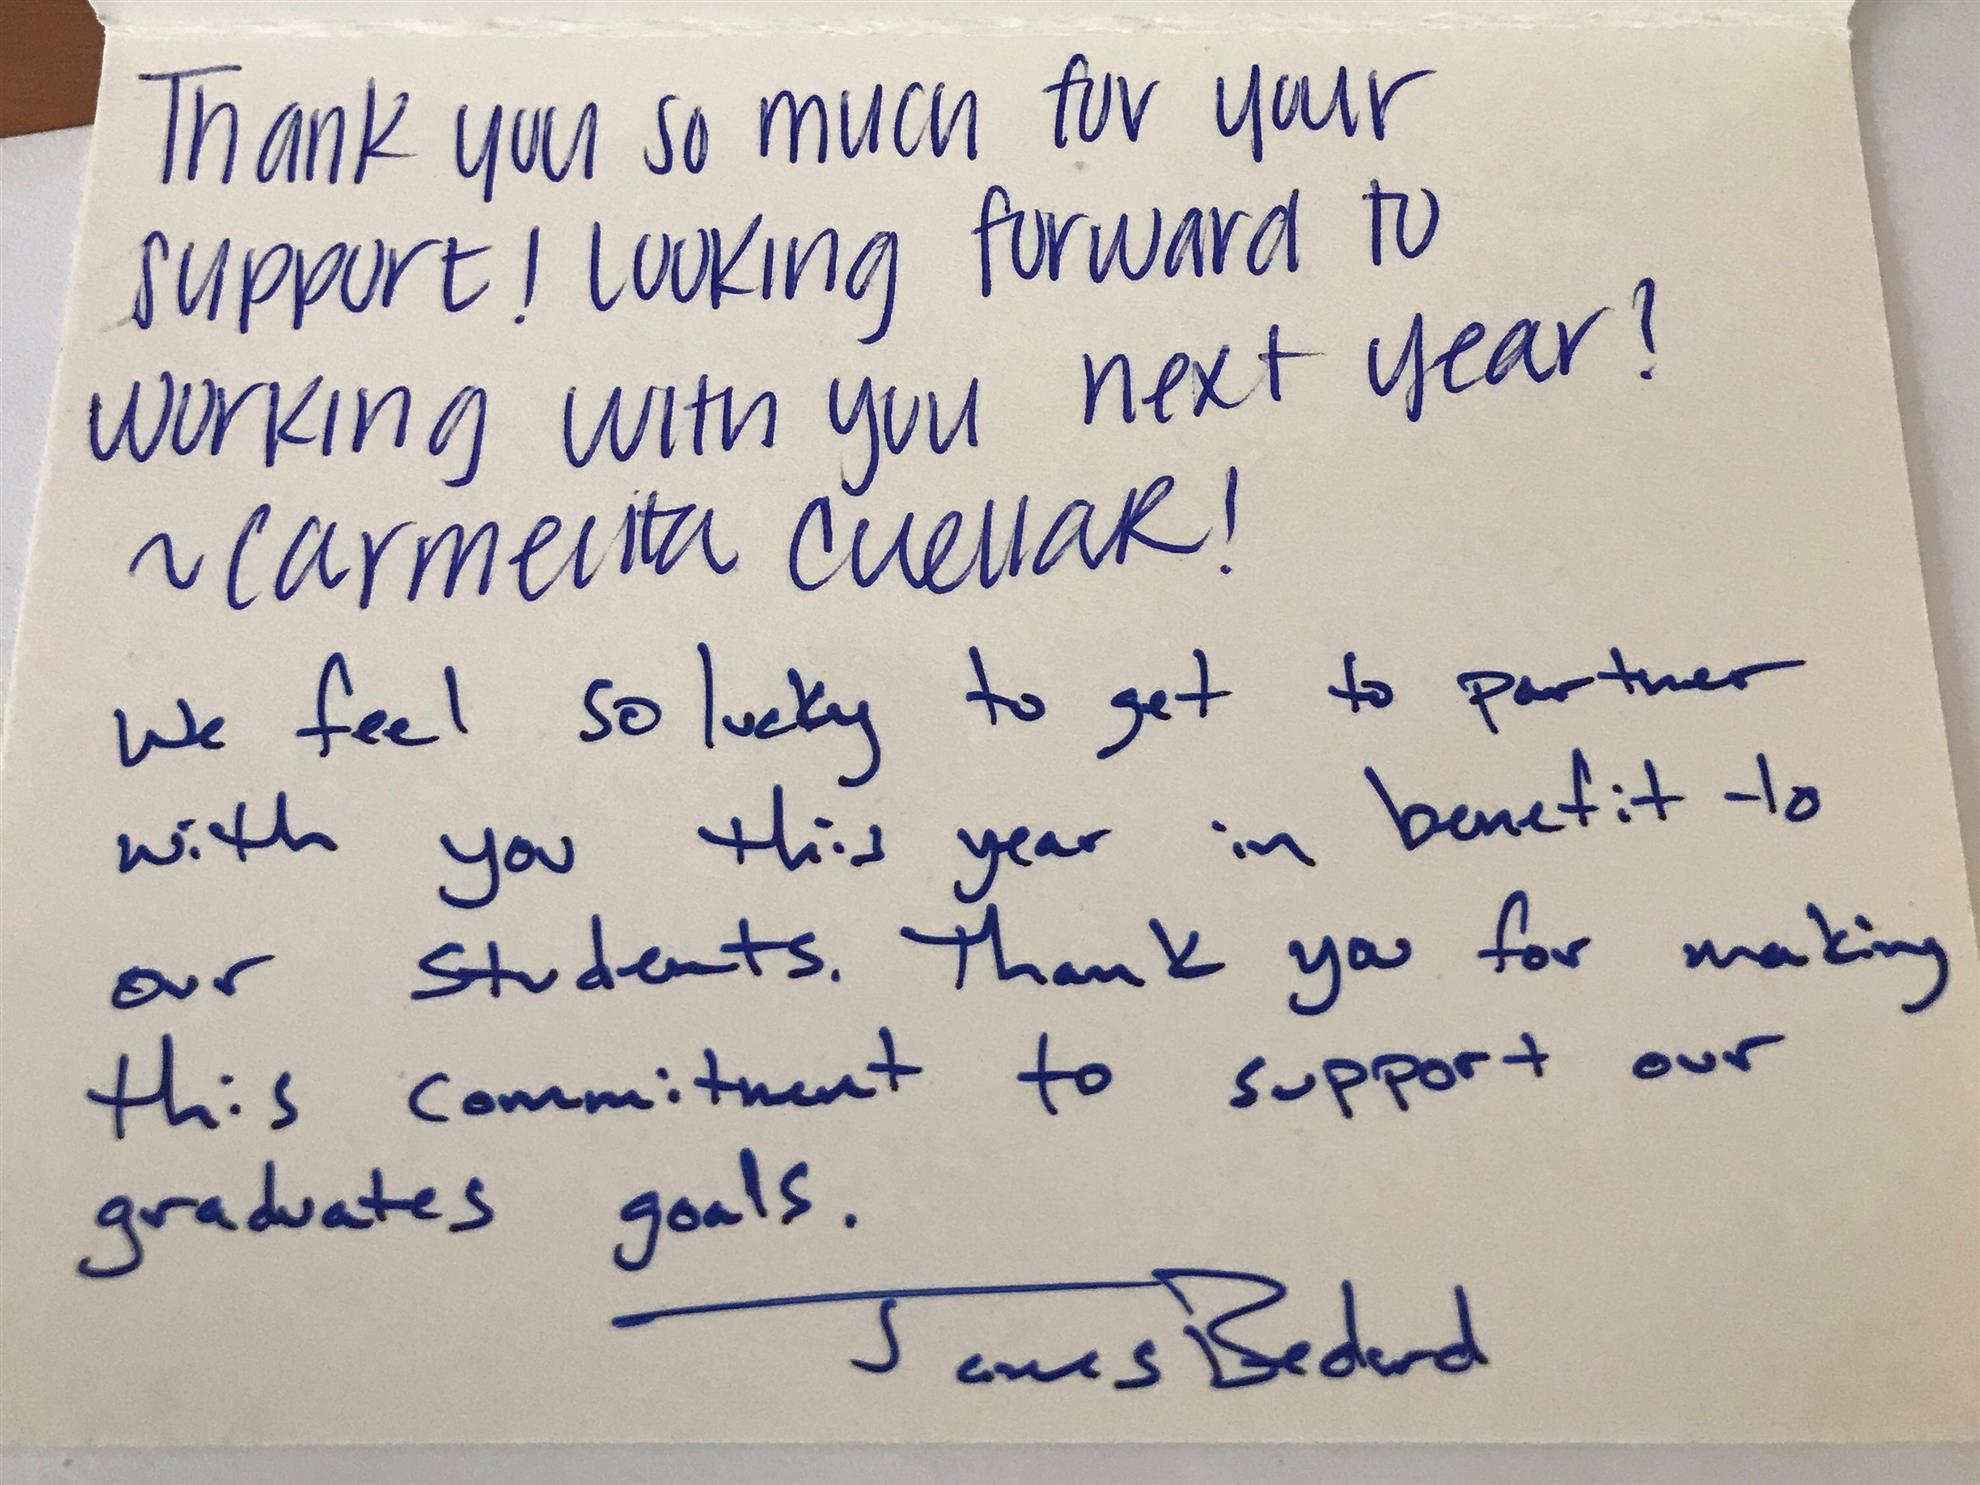 Thank you so much for your
support! Looking forward to
working with you next year!
~Carmelita Cuellar!
We feel so lucky to get to partner
with you this year in benefit to
our students. Thank you for making
this commitment to support our
graduates goals.
James Bedard